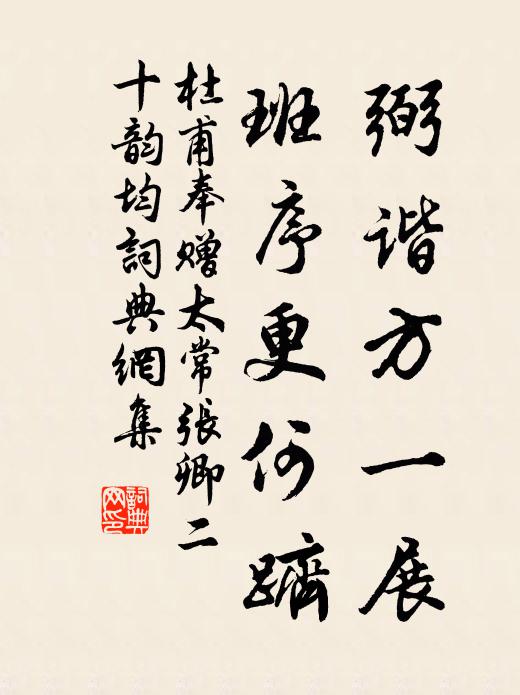 弼谐方一展
班序更何躋
杜甫奉赠太常張卿二
十韵均詞典網集
詞典
网印